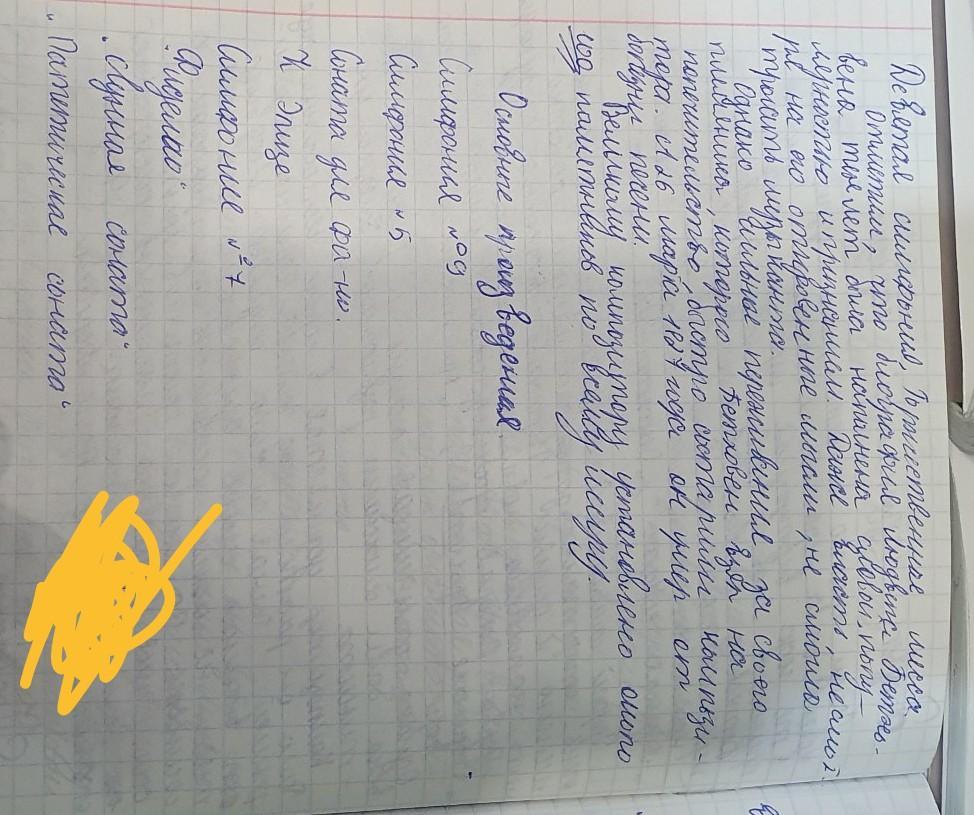 Девятая симфония, Торжественная месса
Отметим, что биография Людвига Бетхо-
вена тяж лет была наполнена
мудростью и принципам Даже власть, не смот-
ря на его откровенные мысли, не смогла
тросить музыканта.
Однако сильные переживания за своего
племянника, которого Бетховен взял на
попечительство, быстро состарили компози-
тора. А 26 марта 1827 года он умер от
болезни печени.
Великому композитору установлено около
100 памятников по всему миру.
Основные произведения.
Симфония №9
Симфония №5
Соната для фо-но.
К Элизе
Симфония №7
"Фиделио"
"Лунная соната"
"Патетическая соната"